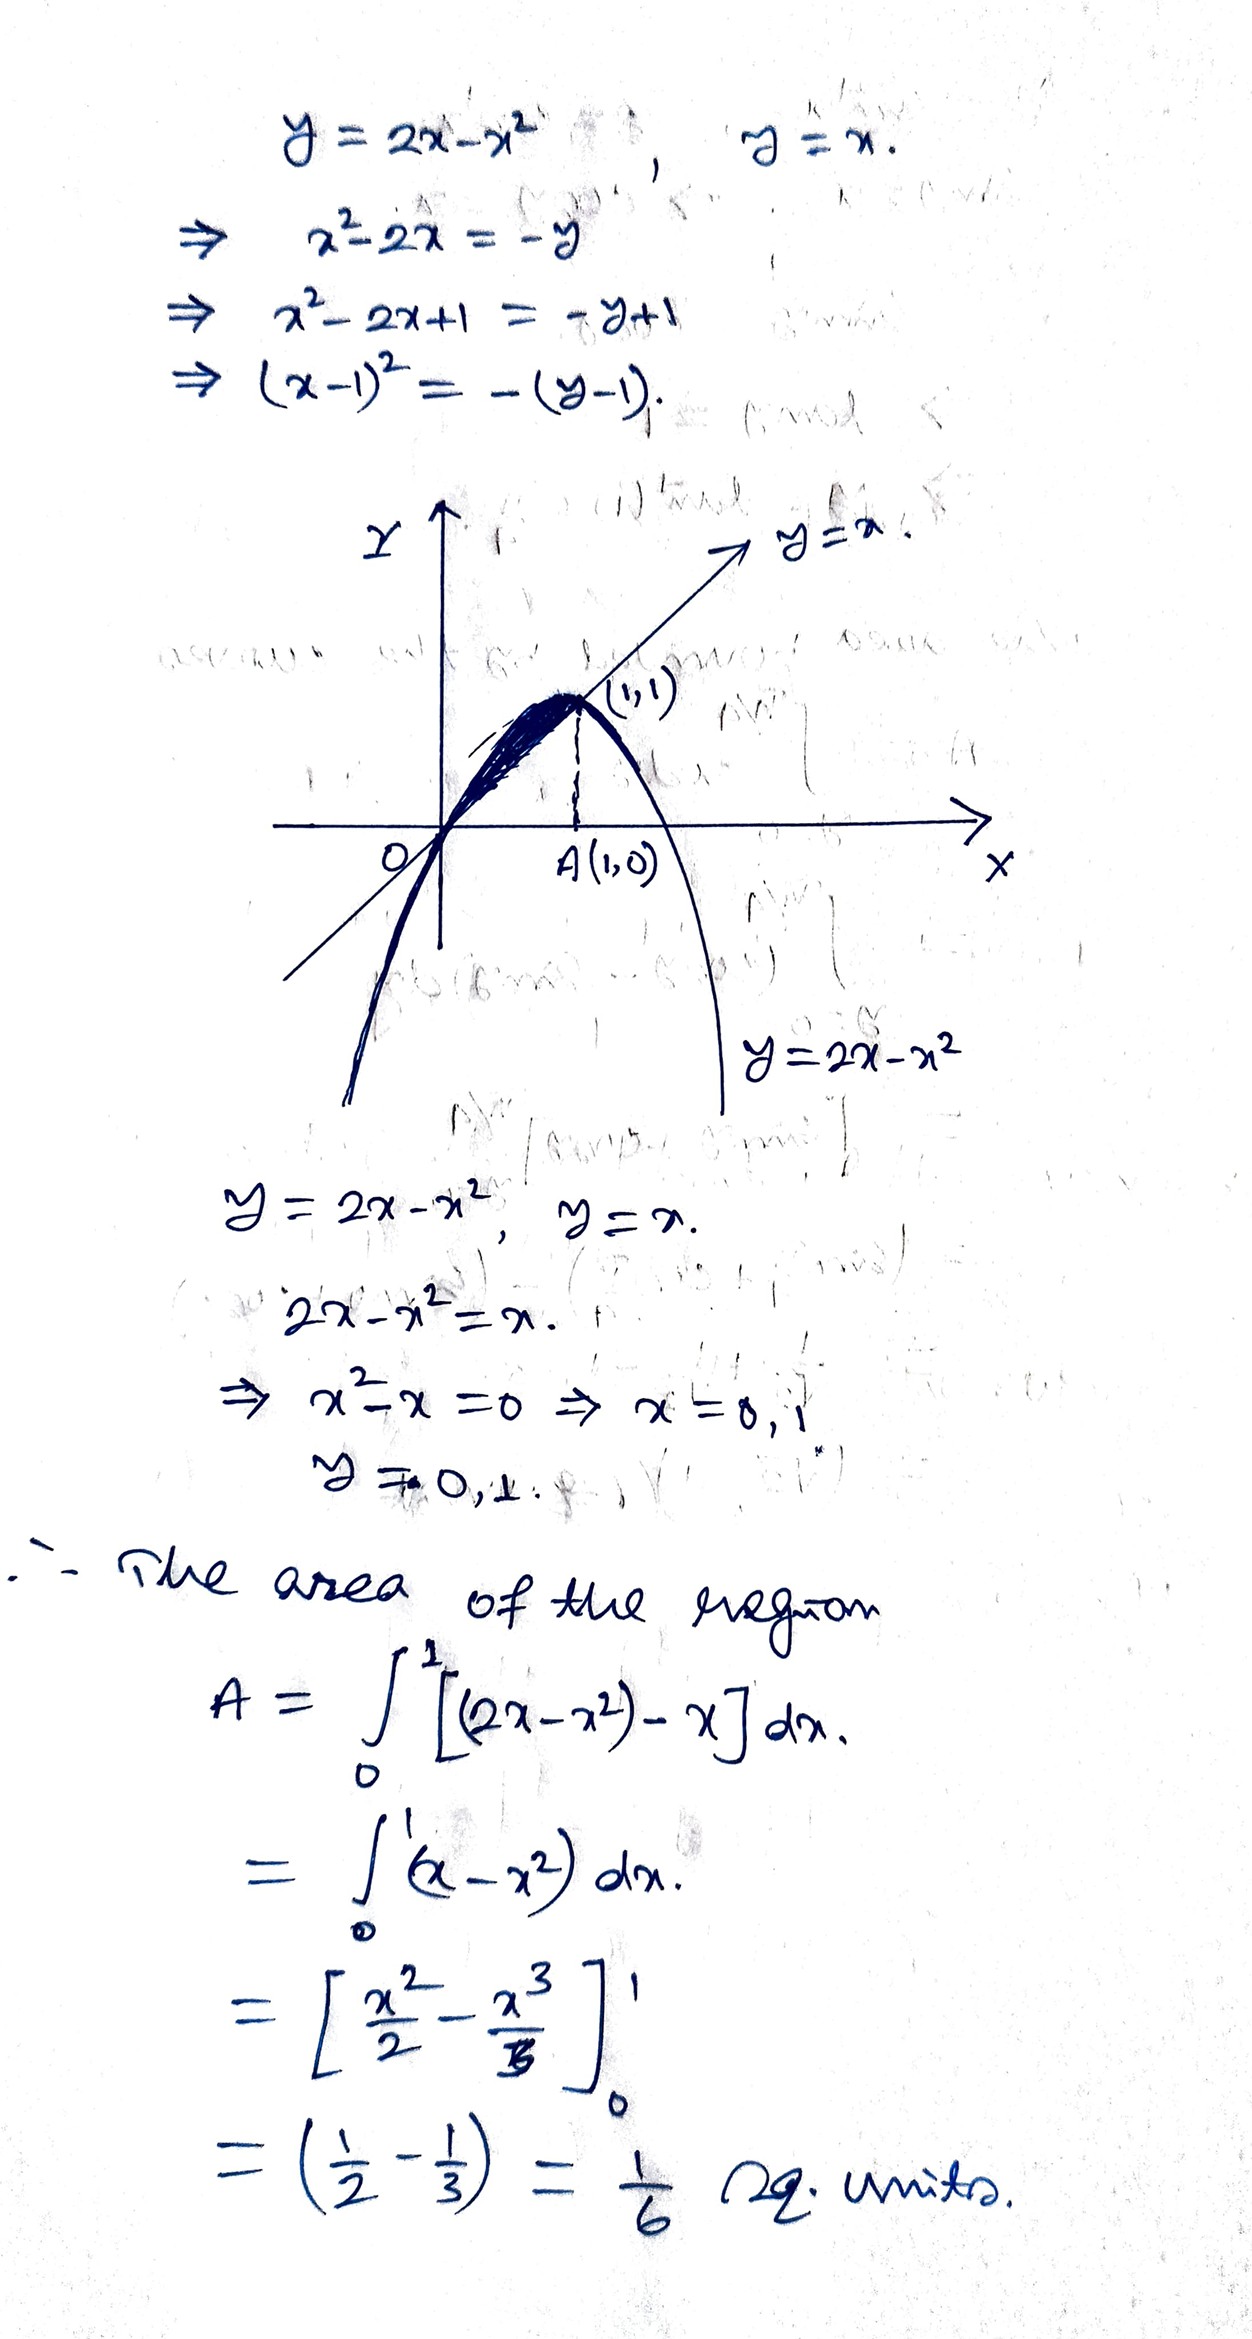 y = 2x-x² , y = x.
⇒ x²-2x = -y
⇒ x²-2x+1 = -y+1
⇒ (x-1)² = -(y-1).
Y
y=x.
(1,1)
O
A(1,0)
X
y=2x-x²
y = 2x-x², y=x.
2x-x²=x.
⇒ x²-x=0 ⇒ x=0,1
y = 0,1.
∴ The area of the region
A = ∫₀¹ [(2x-x²)-x] dx.
= ∫₀¹ (x-x²) dx.
= [x²/2 - x³/3]₀¹
= (1/2 - 1/3) = 1/6 sq. units.